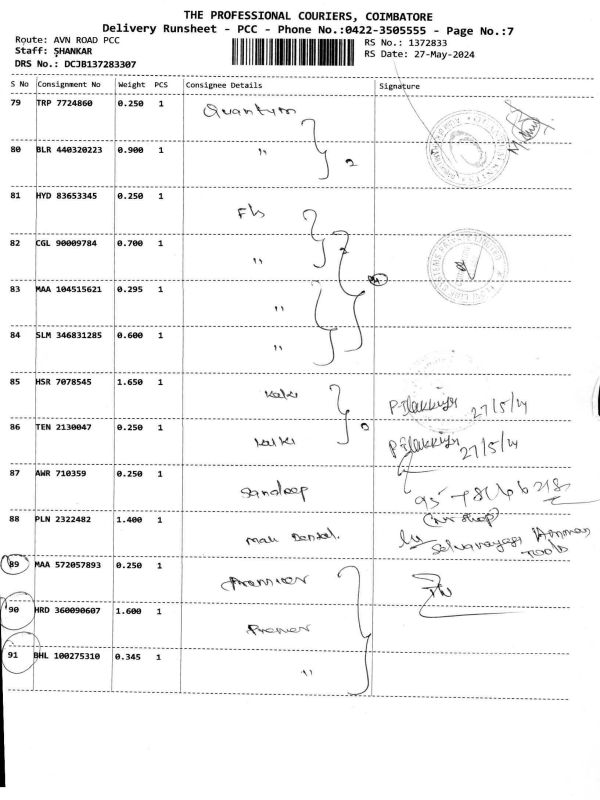 THE PROFESSIONAL COURIERS, COIMBATORE
Delivery Runsheet - PCC - Phone No.:0422-3505555 - Page No.:7
Route: AVN ROAD PCC
RS No.: 1372833
Staff: SHANKAR
RS Date: 27-May-2024
DRS No.: DCJB137283307
S No Consignment No Weight PCS Consignee Details Signature
79 TRP 7724860 0.250 1 Quantum
80 BLR 440320223 0.900 1 " 2
81 HYD 83653345 0.250 1
82 CGL 90009784 0.700 1 "
83 MAA 104515621 0.295 1 " 4
84 SLM 346831285 0.600 1 "
85 HSR 7078545 1.650 1 27/5/24
86 TEN 2130047 0.250 1 kalki 27/5/24
87 AWR 710359 0.250 1 Sandeep
88 PLN 2322482 1.400 1 Dental.
89 MAA 572057893 0.250 1 Premier
90 HRD 360090607 1.600 1 Premier
91 BHL 100275310 0.345 1 "